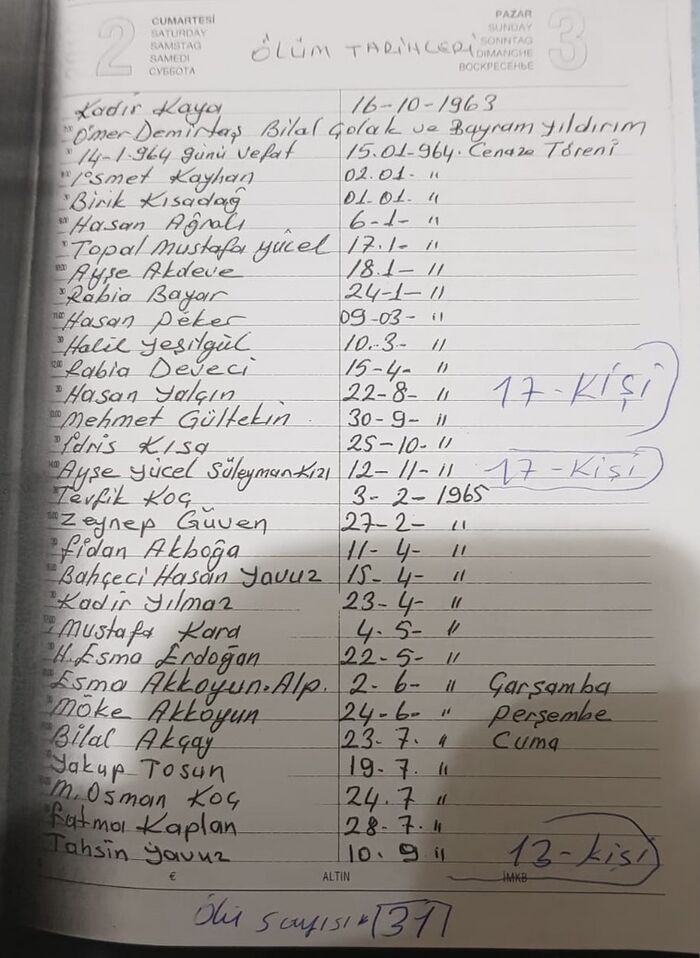 2
CUMARTESİ
SATURDAY
SAMSTAG
SAMEDI
СУББОТА
ÖLÜM TARİHLERİ
PAZAR
SUNDAY
SONNTAG
DIMANCHE
ВОСКРЕСЕНЬЕ
3
Kadir Kaya 16-10-1963
Ömer Demirtaş Bilal Çolak ve Bayram Yıldırım
14-1-964 günü vefat 15.01-964. Cenaze Töreni
İsmet Kayhan 02.01. "
Birik Kısadağ 01.01. "
Hasan Ağralı 6-1- "
Topal Mustafa Yücel 17.1- "
Ayşe Akdeve 18.1- "
Rabia Bayar 24-1- "
Hasan Peker 09-03- "
Halil Yeşilgül 10.-3- "
Rabia Deveci 15-4- "
Hasan Yalçın 22-8- " 17-Kişi
Mehmet Gültekin 30-9- "
İdris Kısa 25-10- "
Ayşe Yücel Süleyman Kızı 12-11- " 17-Kişi
Tevfik Koç 3-2-1965
Zeynep Güven 27-2- "
Fidan Akboğa 11-4- "
Bahçeci Hasan Yavuz 15-4- "
Kadir Yılmaz 23-4- "
Mustafa Kara 4-5- "
H. Esma Erdoğan 22-5- "
Esma Akkoyun. Alp. 2-6- " Çarşamba
Möke Akkoyun 24-6- " Perşembe
Bilal Akçay 23-7. " Cuma
Yakup Tosun 19-7. "
M. Osman Koç 24.7 "
Fatma Kaplan 28-7. "
Tahsin Yavuz 10.9 " 13-Kişi
€ ALTIN İMKB
Ölü sayısı 31